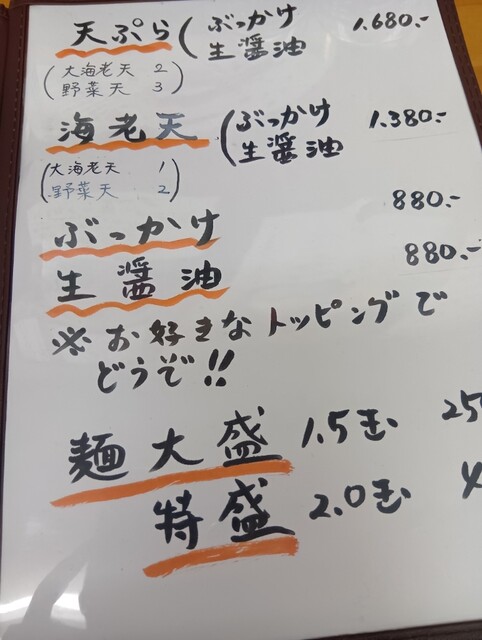 天ぷら ( ぶっかけ 1,680.-
生醤油
( 大海老天 2
野菜天 3 )
海老天 ( ぶっかけ 1,380.-
生醤油
( 大海老天 1
野菜天 2 )
ぶっかけ 880.-
生醤油 880.-
※お好きなトッピングで
どうぞ!!
麺大盛 1.5玉 25
特盛 2.0玉